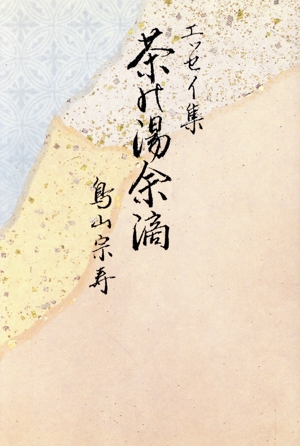 エッセイ集
茶の湯余滴
鳥山宗寿